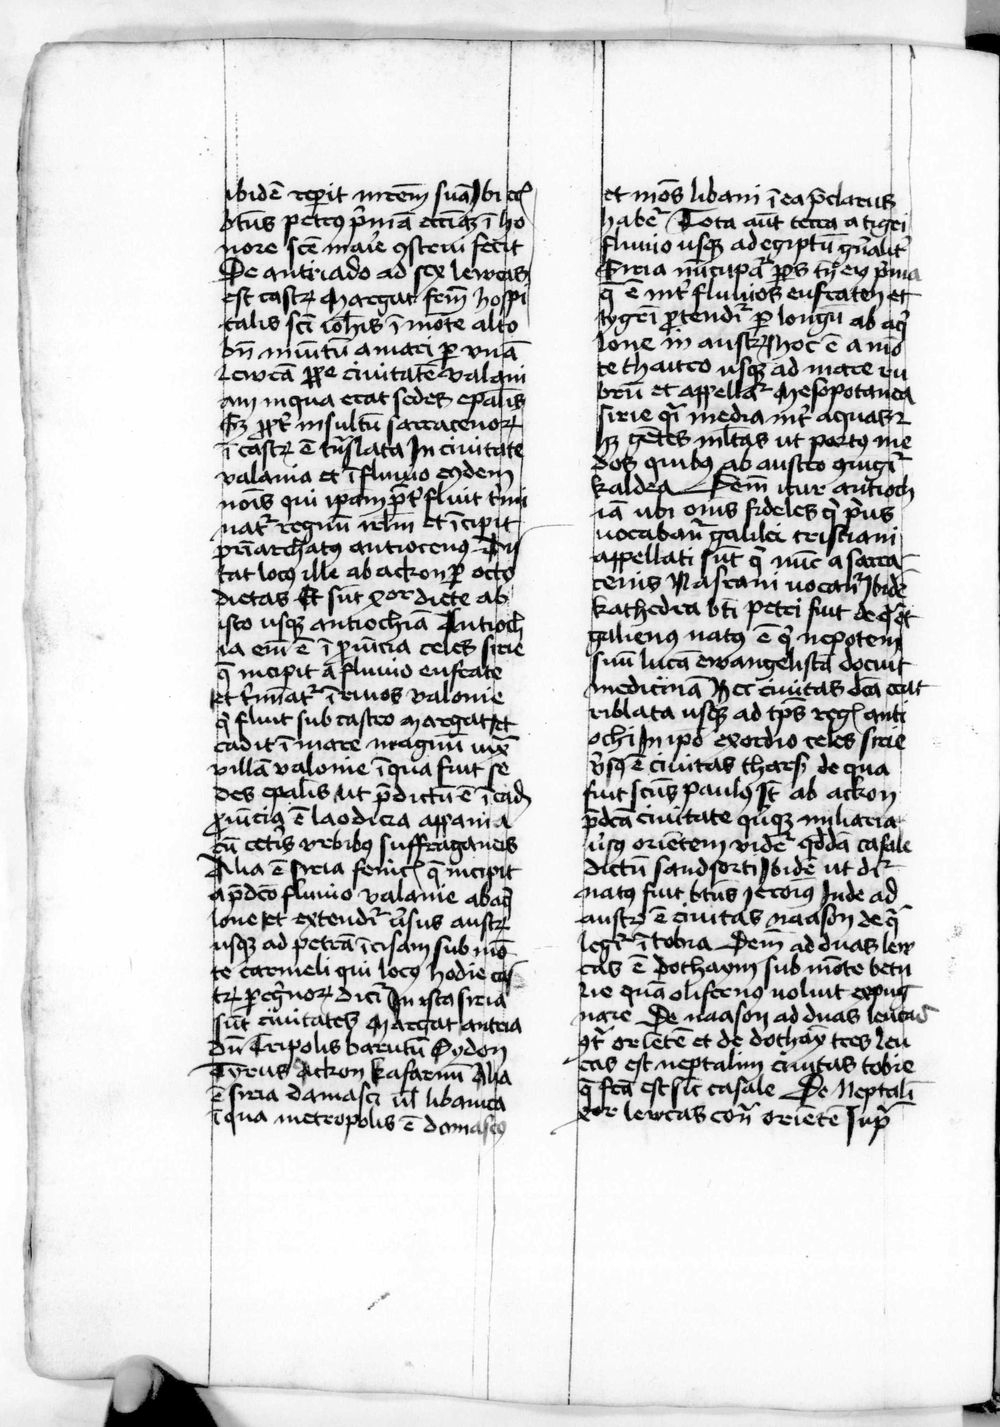 ibidē rep̄it mr̄em suā Ibi ec̄
bt̄us petrꝰ p̄mā ecc̄iaꝫ ī ho
nore sc̄e marie ꝯstrui fecit
De antriado ad sex lewcas
est castrꝝ Margat frm̄ hospi
talis sc̄i ioh̄is ī mōte alto
bn̄ munitū a mari ꝑ vnā
lewcā ꝓpe ciuitatē valani
am in qua erat sedes epal̄is
Sꝫ ꝓpt̄ insultū sarracenoꝝ
ī castrꝝ ē tn̄slata In ciuitate
valania et ī fluuio eiusdem
nōis qui ip̄am p̄t̓fluit t̓mi
nat̓ regnū irl̄m et īcipit
pri̓archatꝰ antiocenꝰ Di
stat locꝰ ille ab ackon ꝑ octo
dietas Et sūt xor diete ab
isto usqꝫ antiochiā Antioch̄
ia eni̅ ē ī ꝓuīcia celes sirie
q̄ incipit a fluuio eufrate
et t̓mīat̓ ī riuos valonie
q̓ fluit sub castro margat et
cadit ī mare magnū iux̄
villā valonie ī qua fuit se
des epal̄is ut p̄dictū ē ī eadē
ꝓuīcia ē laodicia appania
cū cet̓is vrbibꝰ suffraganeis
Alia ē siria fenic̄ q̄ incipit
a p̄dc̄o fluuio valanie ab aq̓
lone et extendit̓ ūsus austrꝝ
usqꝫ ad petrā īcisam sub mō
te carmeli qui locꝰ hodie cas
trꝝ peg̓noꝝ dicit̓ In ista siria
sūt ciuitates Margat antria
dū Tripolis barutū Sydon
Tyrus Ackon kafarnū Alia
ē siria damasci ul̄ libanica
ī qua metropolis ē damascꝰ
et mōs libani ī ea p̄claruꝫ
habet̓ Tota aūt terra a tigri
fluuio usqꝫ ad egiptū gn̄alit̓
Siria nūcupat̓
q̄ ē int̓ fluuios eufraten et
tygri ꝓtendit̓ ꝑ longū ab aq̓
lone in austrꝝ hoc ē a mō
te thauro usqꝫ ad mare ru
brū et appellat̓ Mesopotanea
sirie q̓ media int̓ aquas
hꝫ gētes ml̄tas ut partos me
dos quibꝰ ab austro iungit̓
kaldea Item̄ itur antioch
iā ubi om̄s fideles q̓ p̓us
uocabant̓ galilei cristiani
appellati sūt q̓ nūc a sarra
cenis Nasrani uocant̓ Ibidē
kathedra bt̄i petri fuit de q̓
galienꝰ natꝰ ē q̓ nepotem
suū lucā ewangelistā docuit
medicinā Hec ciuitas dc̄a erat
riblata usqꝫ ad tp̄s reg̓ anti
ochi In ip̄o exordio celes sirie
ē ciuitas tharsꝰ de qua
fuit sc̄us paulꝰ It̄ ab ackon
p̄dc̄a ciuitate q̓nqꝫ miliaria
ūsꝰ oriētem videt̓ qd̄dā casale
dictū sandforti Ibidē ut dr̄
natꝰ fuit bt̄us ieronimꝰ Inde ad
austrꝝ ē ciuitas naason de q̄
legit̓ ī tobia Dem̄ ad duas lew
cas ē dothaym sub mōte betu
lie quā olifernꝰ uoluit expug
nare De naason ad duas leucas
ꝯt̓ oriētē et de dothay̅ tres leu
cas est neptalim ciuitas tobie
q̄ fc̄a est sic̄ casale De Neptalī
lewcas cont̓ orientē sup̓